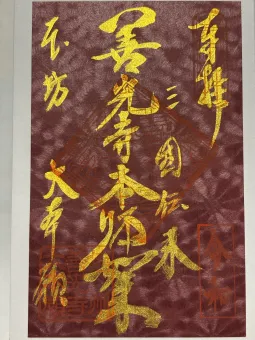 奉拝
三國伝来
善光寺本師如来
本坊
大本願